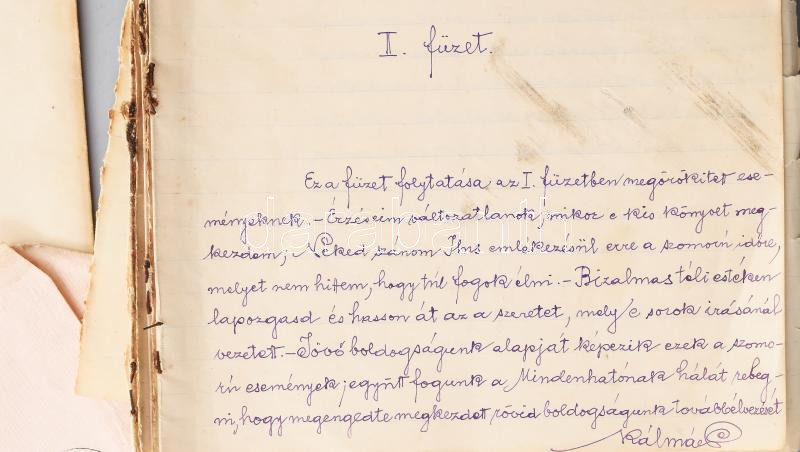 II. füzet.
Ez a füzet folytatása az I. füzetben megörökitett ese-
ményeknek. – Érzéseim változatlanok, mikor e kis könyvet meg-
kezdem; Néked szánom emlékezésül erre a szomorú időre,
melyet nem hittem, hogy túl fogok élni. – Bizalmas téli estéken
lapozgasd és hasson át az a szeretet, mely e sorok irásánál
vezetett. – Jövő boldogságunk alapját képezik ezek a szomo-
rú események; együtt fogunk a Mindenhatónak hálát rebeg-
ni, hogy megengedte megkezdett rövid boldogságunk továbbélvezését
Kálmán